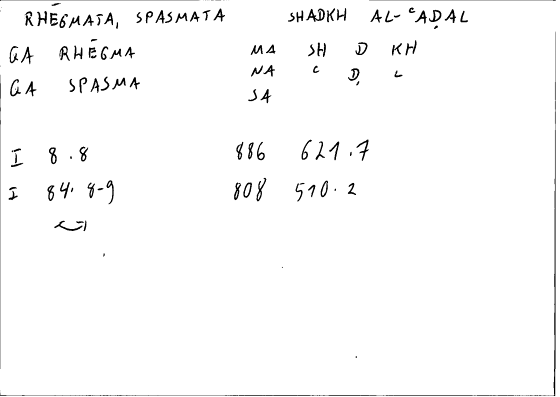 RHĒGMATA, SPASMATA SHADKH AL-ʿAḌAL
GA RHĒGMA MA SH D KH
GA SPASMA NA ʿ Ḍ L
SA
I 8.8 886 621.7
I 84.8-9 808 510.2